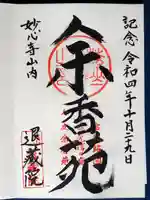 記念 令和四年十月二十九日
余香苑
妙心寺山内
退蔵院